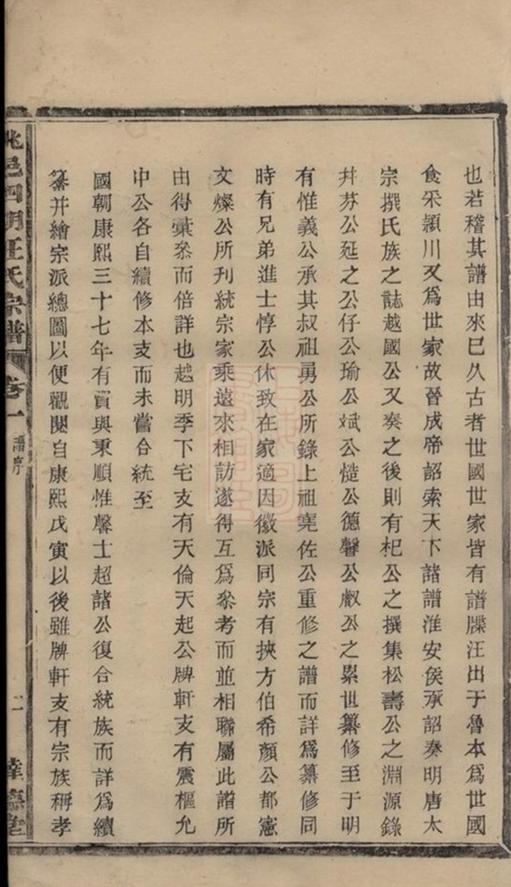 也若稽其譜由來已久古者世國世家皆有譜牒汪出于魯本為世國
食采潁川又為世家故晉成帝詔索天下諸譜淮安侯承詔奏明唐太
宗撰氏族之誌越國公又奏之後則有杞公之撰集松壽公之淵源錄
幷芬公延之公仔公瑜公斌公愷公德馨公䚟公之累世纂修至于明
有惟義公承其叔祖勇公所錄上祖堯佐公重修之譜而詳為纂修同
時有兄弟進士惇公休致在家適因徽派同宗有挾方伯希顏公都憲
文燦公所刊統宗家乘遠來相訪遂得互為叅考而並相聯屬此譜所
由得彙叅而倍詳也越明季下宅支有天倫天起公牌軒支有震樞允
中公各自續修本支而未嘗合統至
國朝康熙三十七年有賓與秉順惟馨士超諸公復合統族而詳為續
纂并繪宗派總圖以便觀閱自康熙戊寅以後雖牌軒支有宗族稱孝
姚邑四明汪氏宗譜 卷一 譜序 二 達德堂